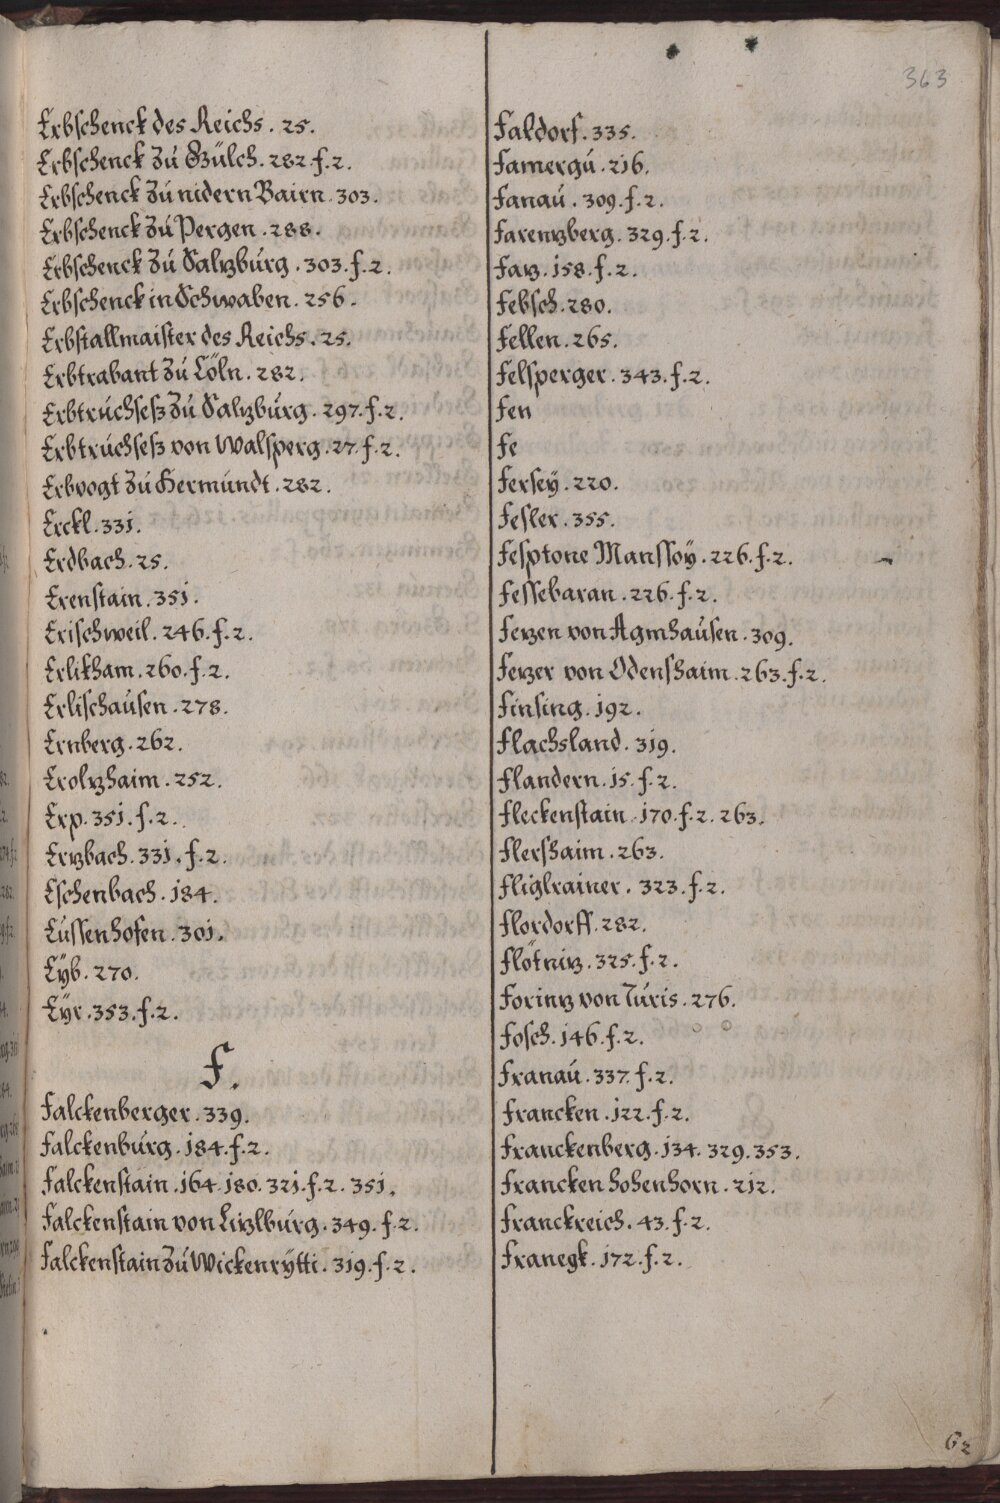 363
Erbschenck des Reichs. 25.
Erbschenck zú Gülch. 282 f. 2.
Erbschenck zú nidern Bairn. 303.
Erbschenck zú Pergen. 288.
Erbschenck zú Saltzbúrg. 303. f. 2.
Erbschenck in Schwaben. 256.
Erbstallmaister des Reichs. 25.
Erbtrabant zú Cöln. 282.
Erbtrúchseß zú Saltzbúrg. 297. f. 2.
Erbtrúchseß von Walsperg. 27. f. 2.
Erbvogt zú Hermúndt. 282.
Erckl. 331.
Erdbach. 25.
Erenstain. 351.
Erischweil. 246. f. 2.
Erlikham. 260. f. 2.
Erlischaúsen. 278.
Ernberg. 262.
Eroltzhaim. 252.
Erp. 351. f. 2.
Ertzbach. 331. f. 2.
Eschenbach. 184.
Eússenhofen. 301.
Eÿb. 270.
Eÿr. 353. f. 2.
F.
Falckenberger. 339.
Falckenbúrg. 184. f. 2.
Falckenstain. 164. 180. 321. f. 2. 351.
Falckenstain von Litzlbúrg. 349. f. 2.
Falckenstain zú Wickenrÿtti. 319. f. 2.
Faldorf. 335.
Famergú. 216.
Fanaú. 309. f. 2.
Farentzberg. 329. f. 2.
Fatz. 158. f. 2.
Febsch. 280.
Fellen. 265.
Felsperger. 343. f. 2.
Fen
Fe
Ferseÿ. 220.
Fesler. 355.
Fesptone Manssoÿ. 226. f. 2.
Fessebaran. 226. f. 2.
Fetzen von Agmhaúsen. 309.
Fetzer von Odenshaim. 263. f. 2.
Finsing. 192.
Flachsland. 319.
Flandern. 15. f. 2.
Fleckenstain. 170. f. 2. 263.
Flershaim. 263.
Fliglrainer. 323. f. 2.
Flordorff. 282.
Flötnitz. 325. f. 2.
Forintz von Túris. 276.
Fosch. 146. f. 2.
Franaú. 337. f. 2.
Francken. 122. f. 2.
Franckenberg. 134. 329. 353.
Francken hohenhorn. 212.
Franckreich. 43. f. 2.
Franegk. 172. f. 2.